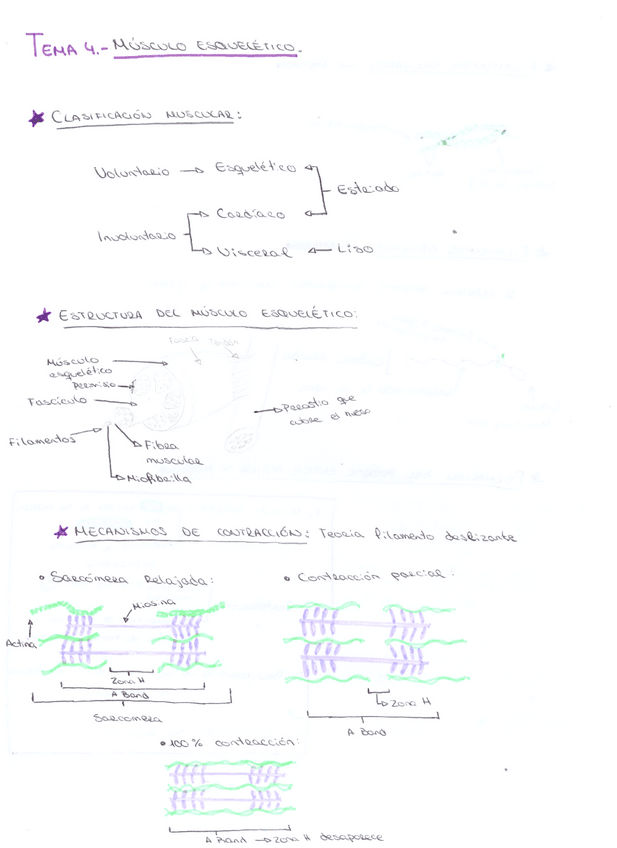 TEMA 4.- MÚSCULO ESQUELÉTICO.
CLASIFICACIÓN MUSCULAR:
Voluntario → Esquelético
Estriado
Cardíaco
Involuntario
Visceral ← Liso
ESTRUCTURA DEL MÚSCULO ESQUELÉTICO:
Fascia Tendón
Músculo
esquelético
Perimisio
Fascículo
Periostio que
cubre el hueso
Filamentos
Fibra
muscular
Miofibrilla
MECANISMOS DE CONTRACCIÓN: Teoria filamento deslizante
• Sarcómera Relajada:
• Contracción parcial:
Miosina
Actina
Zona H
A Band
Sarcómera
Zona H
A Band
• 100% contracción:
A Band → Zona H desaparece